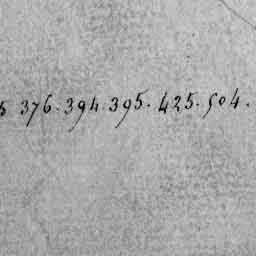 5 376. 394. 395. 425. 504.